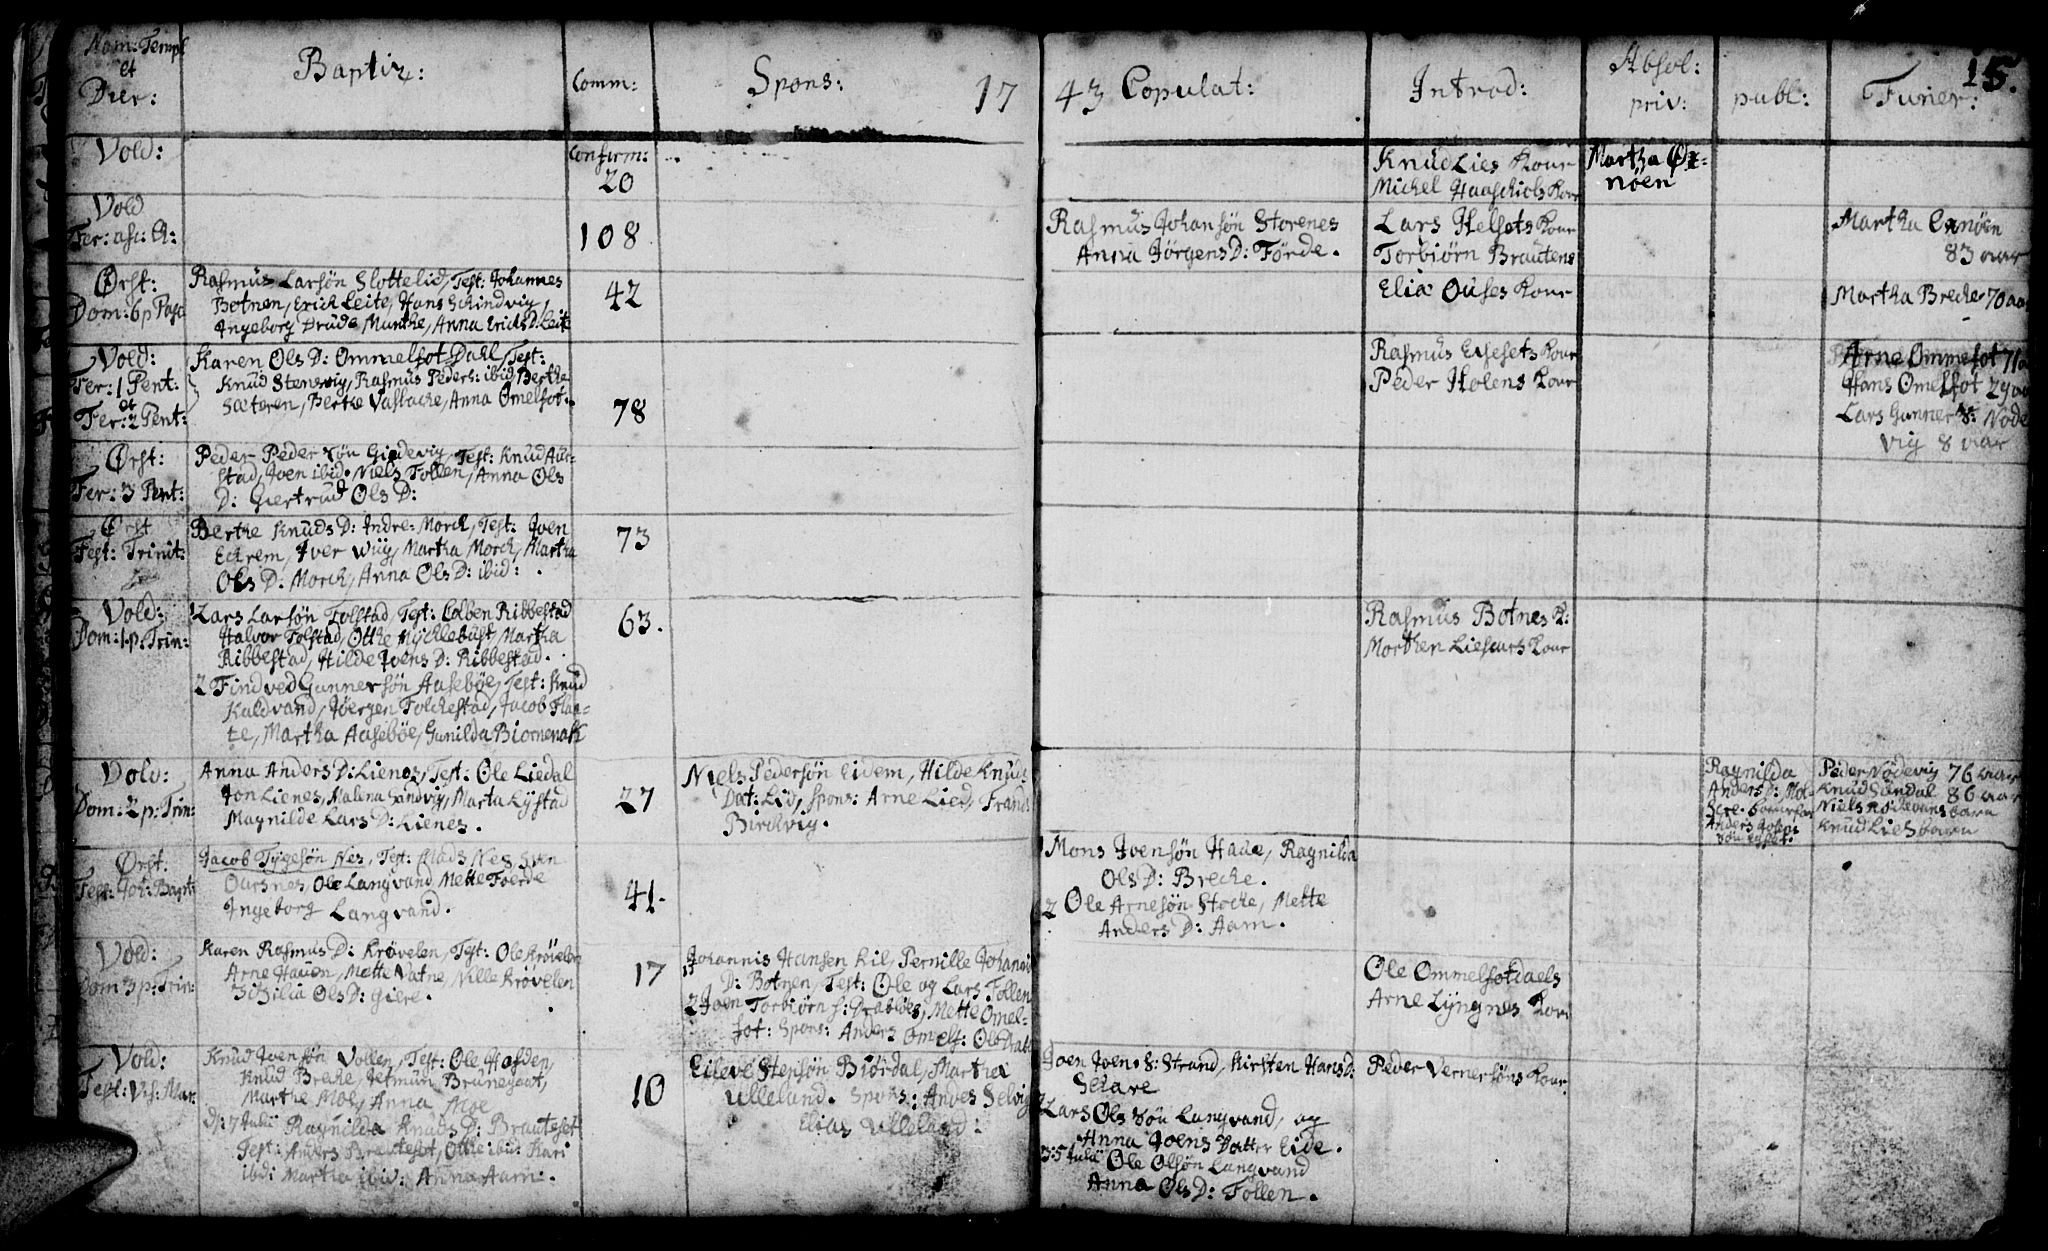 Nom: Templ
et
Dier:
Baptiz:
Comm:
Spons:
17
43
Copulat:
Introd:
Absol:
priv:
publ:
Funer:
15.
Vold:
Confirm:
20
Knud Lies Kour
Michel Haaschiols Kour
Martha Ox=
nöen
Vold
Fer: asc: Ch:
108
Rasmus Johansön Storenes
Anna Jörgens D: Förde.
Lars Helsets Kour
Torbiörn Brautens
Martha Oxnöen
83 aar
Ørst:
Dom: 6 p Pasc
Rasmus Larsön Slottelid, Test: Johannes
Botnen, Erich Leite, Hans Schindvig,
Ingeborg Drude Munthe, Anna Erichs D: Leite
42
Eliæ Ouses Kour
Martha Breche 70 aar
Vold:
Fer: 1 Pent:
et
Fer: 2 Pent:
Karen Ols D: Ommelfot Dahl, Test:
Knud Stensvig, Rasmus Peders: ibid, Berthe
Sæteren, Berthe Vaslache, Anna Omelfot.
78
Rasmus Elsesets Kour
Peder Holens Kour
Arne Ommefot 71 a
Hans Omelfot 29 aar
Lars Gunner S: Nöde
vig 8 aar
Ørst:
Fer: 3 Pent:
Peder Peder Sön Giedevig, Test: Knud Aur=
stad, Joen ibid. Niels Follen, Anna Ols
D: Giertrud Ols D:
Ørst
Fest: Trinit:
Berthe Knuds D: Indre: Morch, Test: Joen
Echrem, Iver Wiig, Martha Morch, Martha
Ols D: Morch, Anna Ols D: ibid:
73
Vold:
Dom: 1 p: Trin:
1 Lars Larsön Folstad, Test: Colben Ribbestad
Halvor Folstad, Otthe Mychlebust, Martha
Ribbestad, Hilde Joens D: Ribbestad.
2 Findved Gunnersön Aasebøe, Test: Knud
Kaldvand, Jöergen Folchestad, Jacob Flaa=
te, Martha Aasebøe, Gunilda Biornenak
63.
Rasmus Botnes K:
Morthen Liesaurs Kour
Vold:
Dom: 2 p: Trin:
Anna Anders D: Lienes, Test: Ole Liedal
Jon Lienes, Malena Sandvig, Marta Lystad
Magnilde Lars D: Lienes.
27
Niels Pedersön Eidem, Hilde Knuds
Dat: Lid, Spons: Arne Lied, Frands
Birchvig.
Ragnilda
Anders D: Mol=
Anders Joens
Peder Nödevig 76 aar
Knud Sandal 86 aar
Knud Lies barn
Ørst.
Fest: Joh: Bapt:
Jacob Tygesön Nes, Test: Mads Nes Sven
Oursnes, Ole Langvand, Mette Foerde
Ingeborg Langvand.
41.
1 Mons Joensön Hade, Ragnilda
Ols D: Breche.
2 Ole Arnesön Stoche, Mette
Anders D: Aam.
Vold:
Dom 3 p: Trin:
Karen Rasmus D: Krövelen, Test: Ole Krövelen
Arne Hauen, Mette Vatne, Nille Krövelen
Schilia Ols D: Giere.
17
Johannis Hansen Kil, Pernille Johannis
D: Botnen, Test: Ole og Lars Follen
2 Joen Torbiörn S: Drabløes, Mette Omel=
fot: Spons: Anders Omelf: Ole Drabl
Ole Ommelfotdaels
Arne Lyngnes Kour
Vold:
Fest: Vis: Mar:
Knud Joensön Vollen, Test: Ole Hafden,
Knud Breche, Jetmun Brunegaat,
Marthe Moe, Anna Moe
d: 7 Julii Ragnilda Knuds D: Brauteset
Test: Anders Brautesot, Otthe ibid: Kari
ibd: Martha ibid: Anna Aam.
10
Eileve Stensön Biördal, Martha
Ulleland. Spons: Anders Selvig
Elias Ulleland.
Joen Joens S: Strand, Kirsten Hans D:
Schare
2 Lars Ols Sön Langvand, og
Anna Joens Datter Eide.
3: 5 Julii Ole Olsön Langvand
Anna Ols D: Follen.
Peder Vernersöns Kour